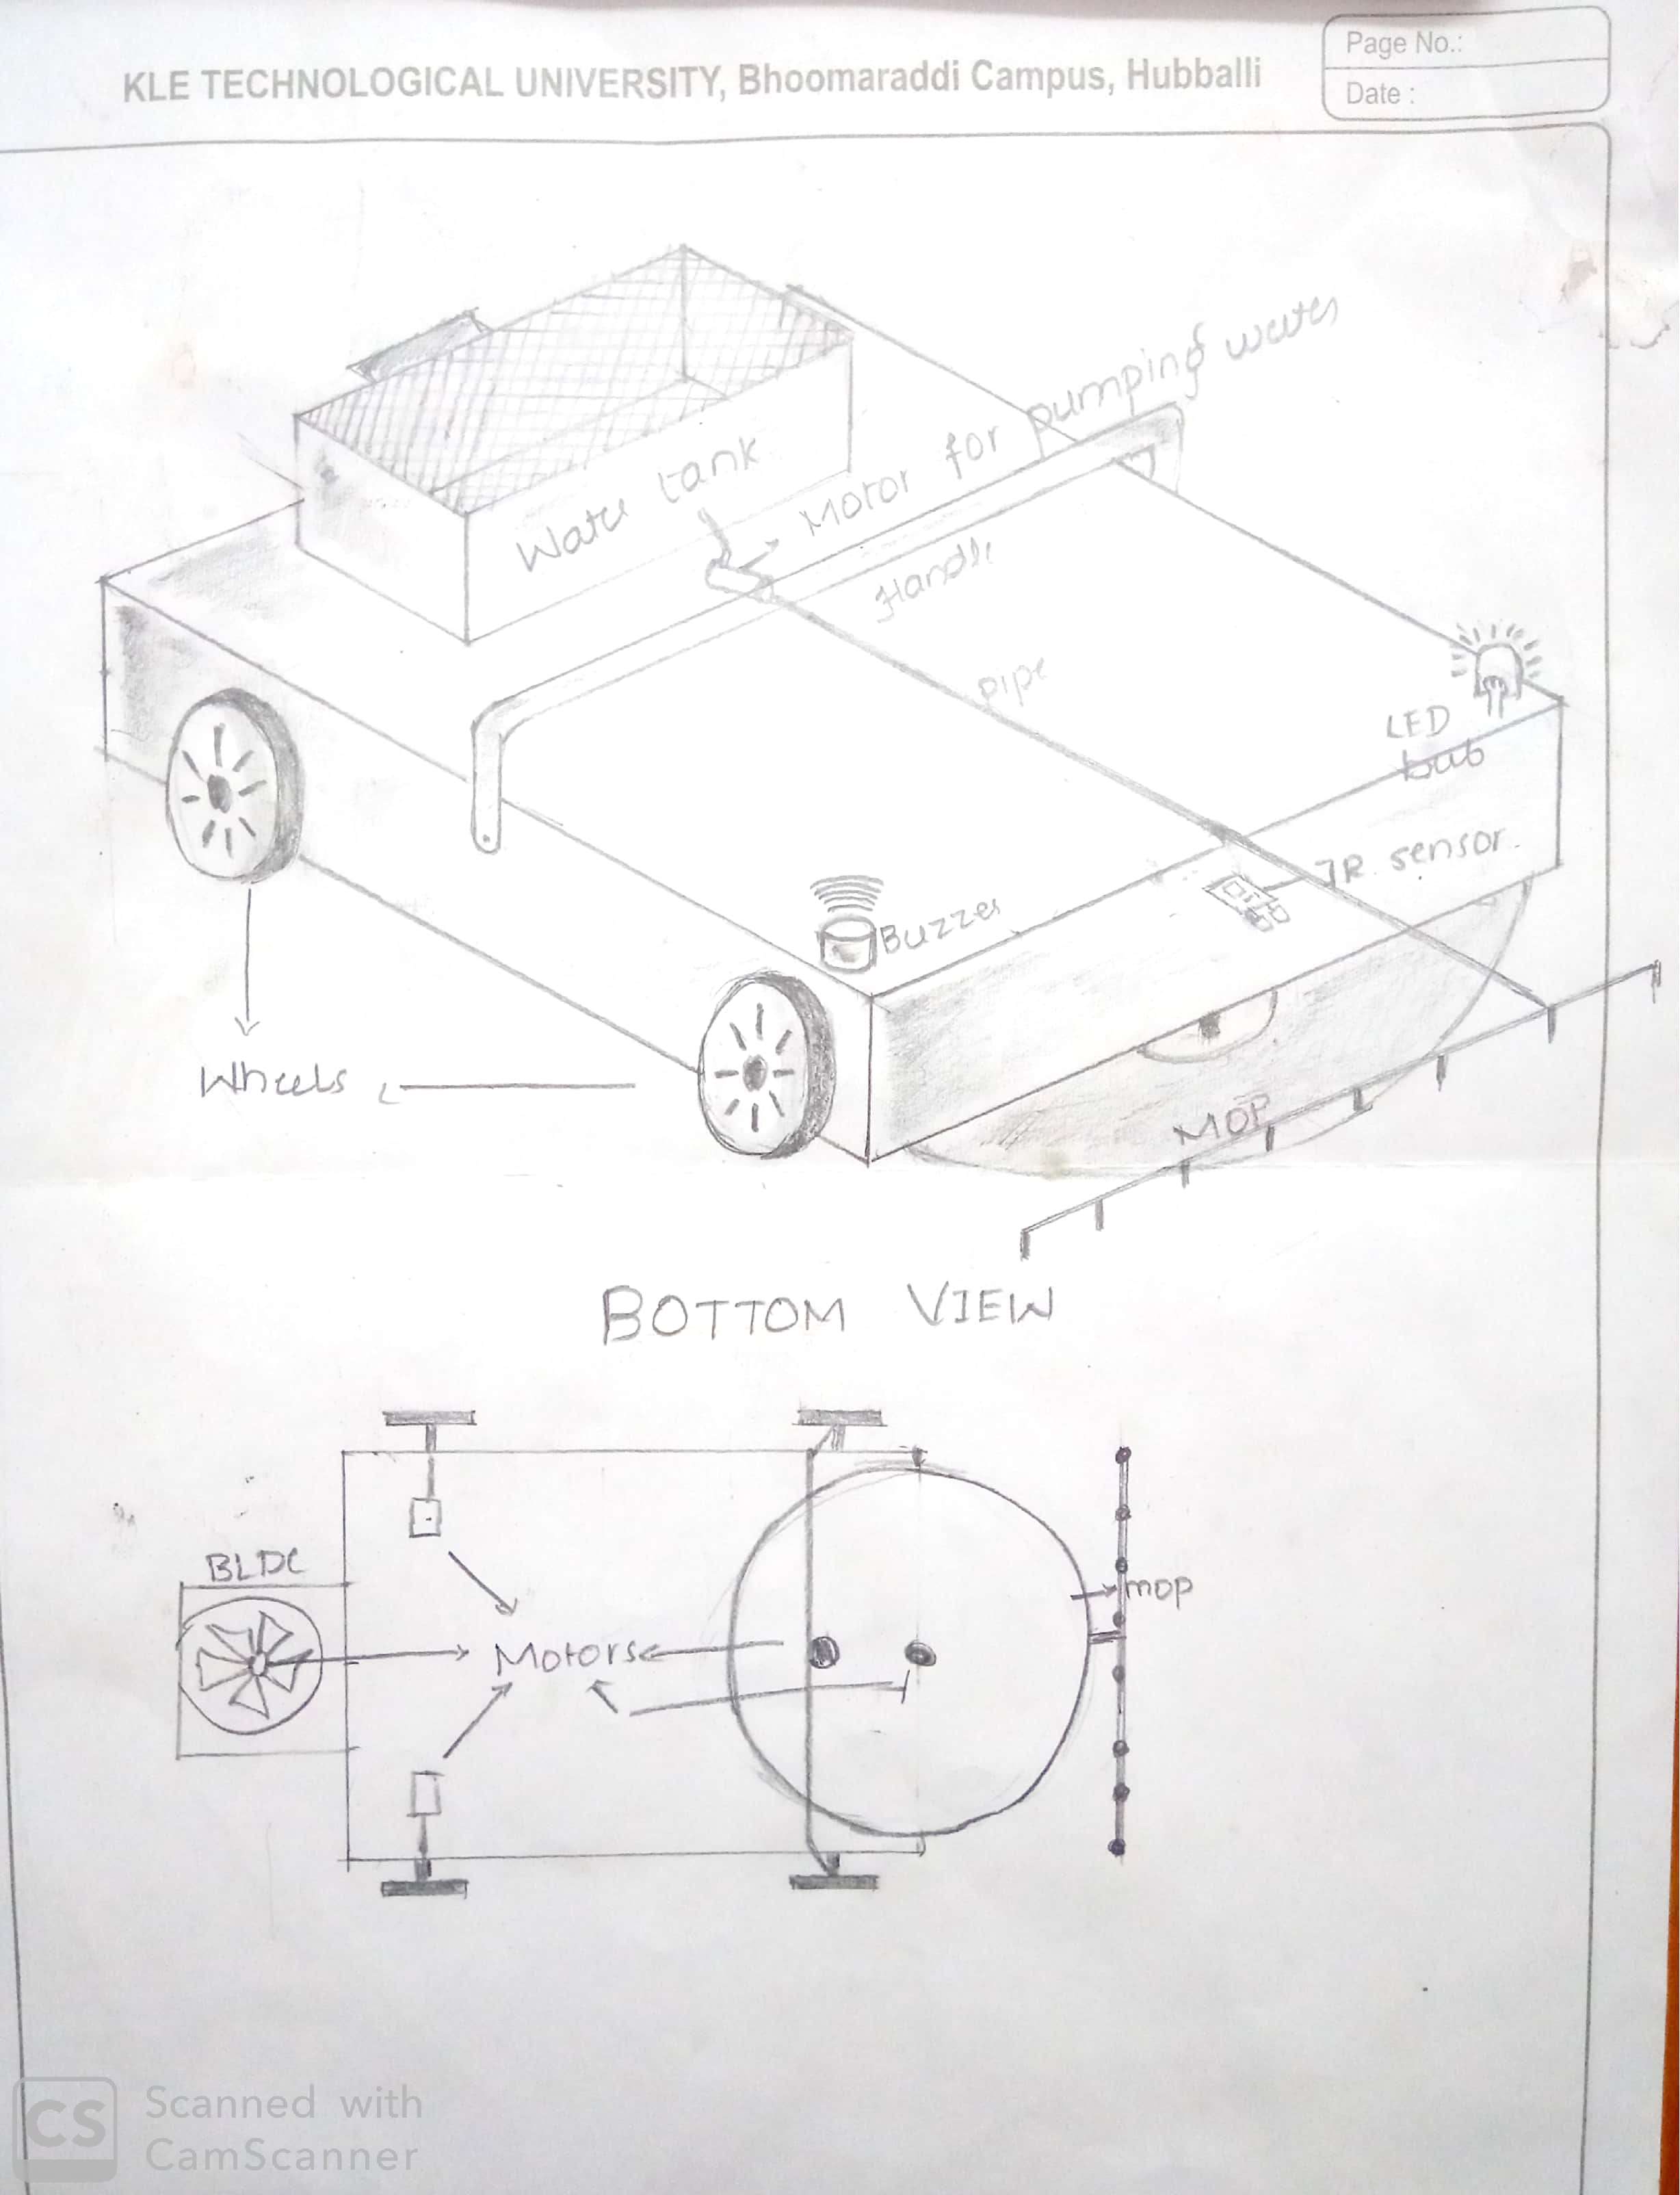 KLE TECHNOLOGICAL UNIVERSITY, Bhoomaraddi Campus, Hubballi
Page No.:
Date :
Water tank
Motor for pumping water
Handle
pipe
LED
bub
IR sensor
Buzzer
Wheels
MOP
BOTTOM VIEW
BLDC
mop
Motors
CS
Scanned with
CamScanner